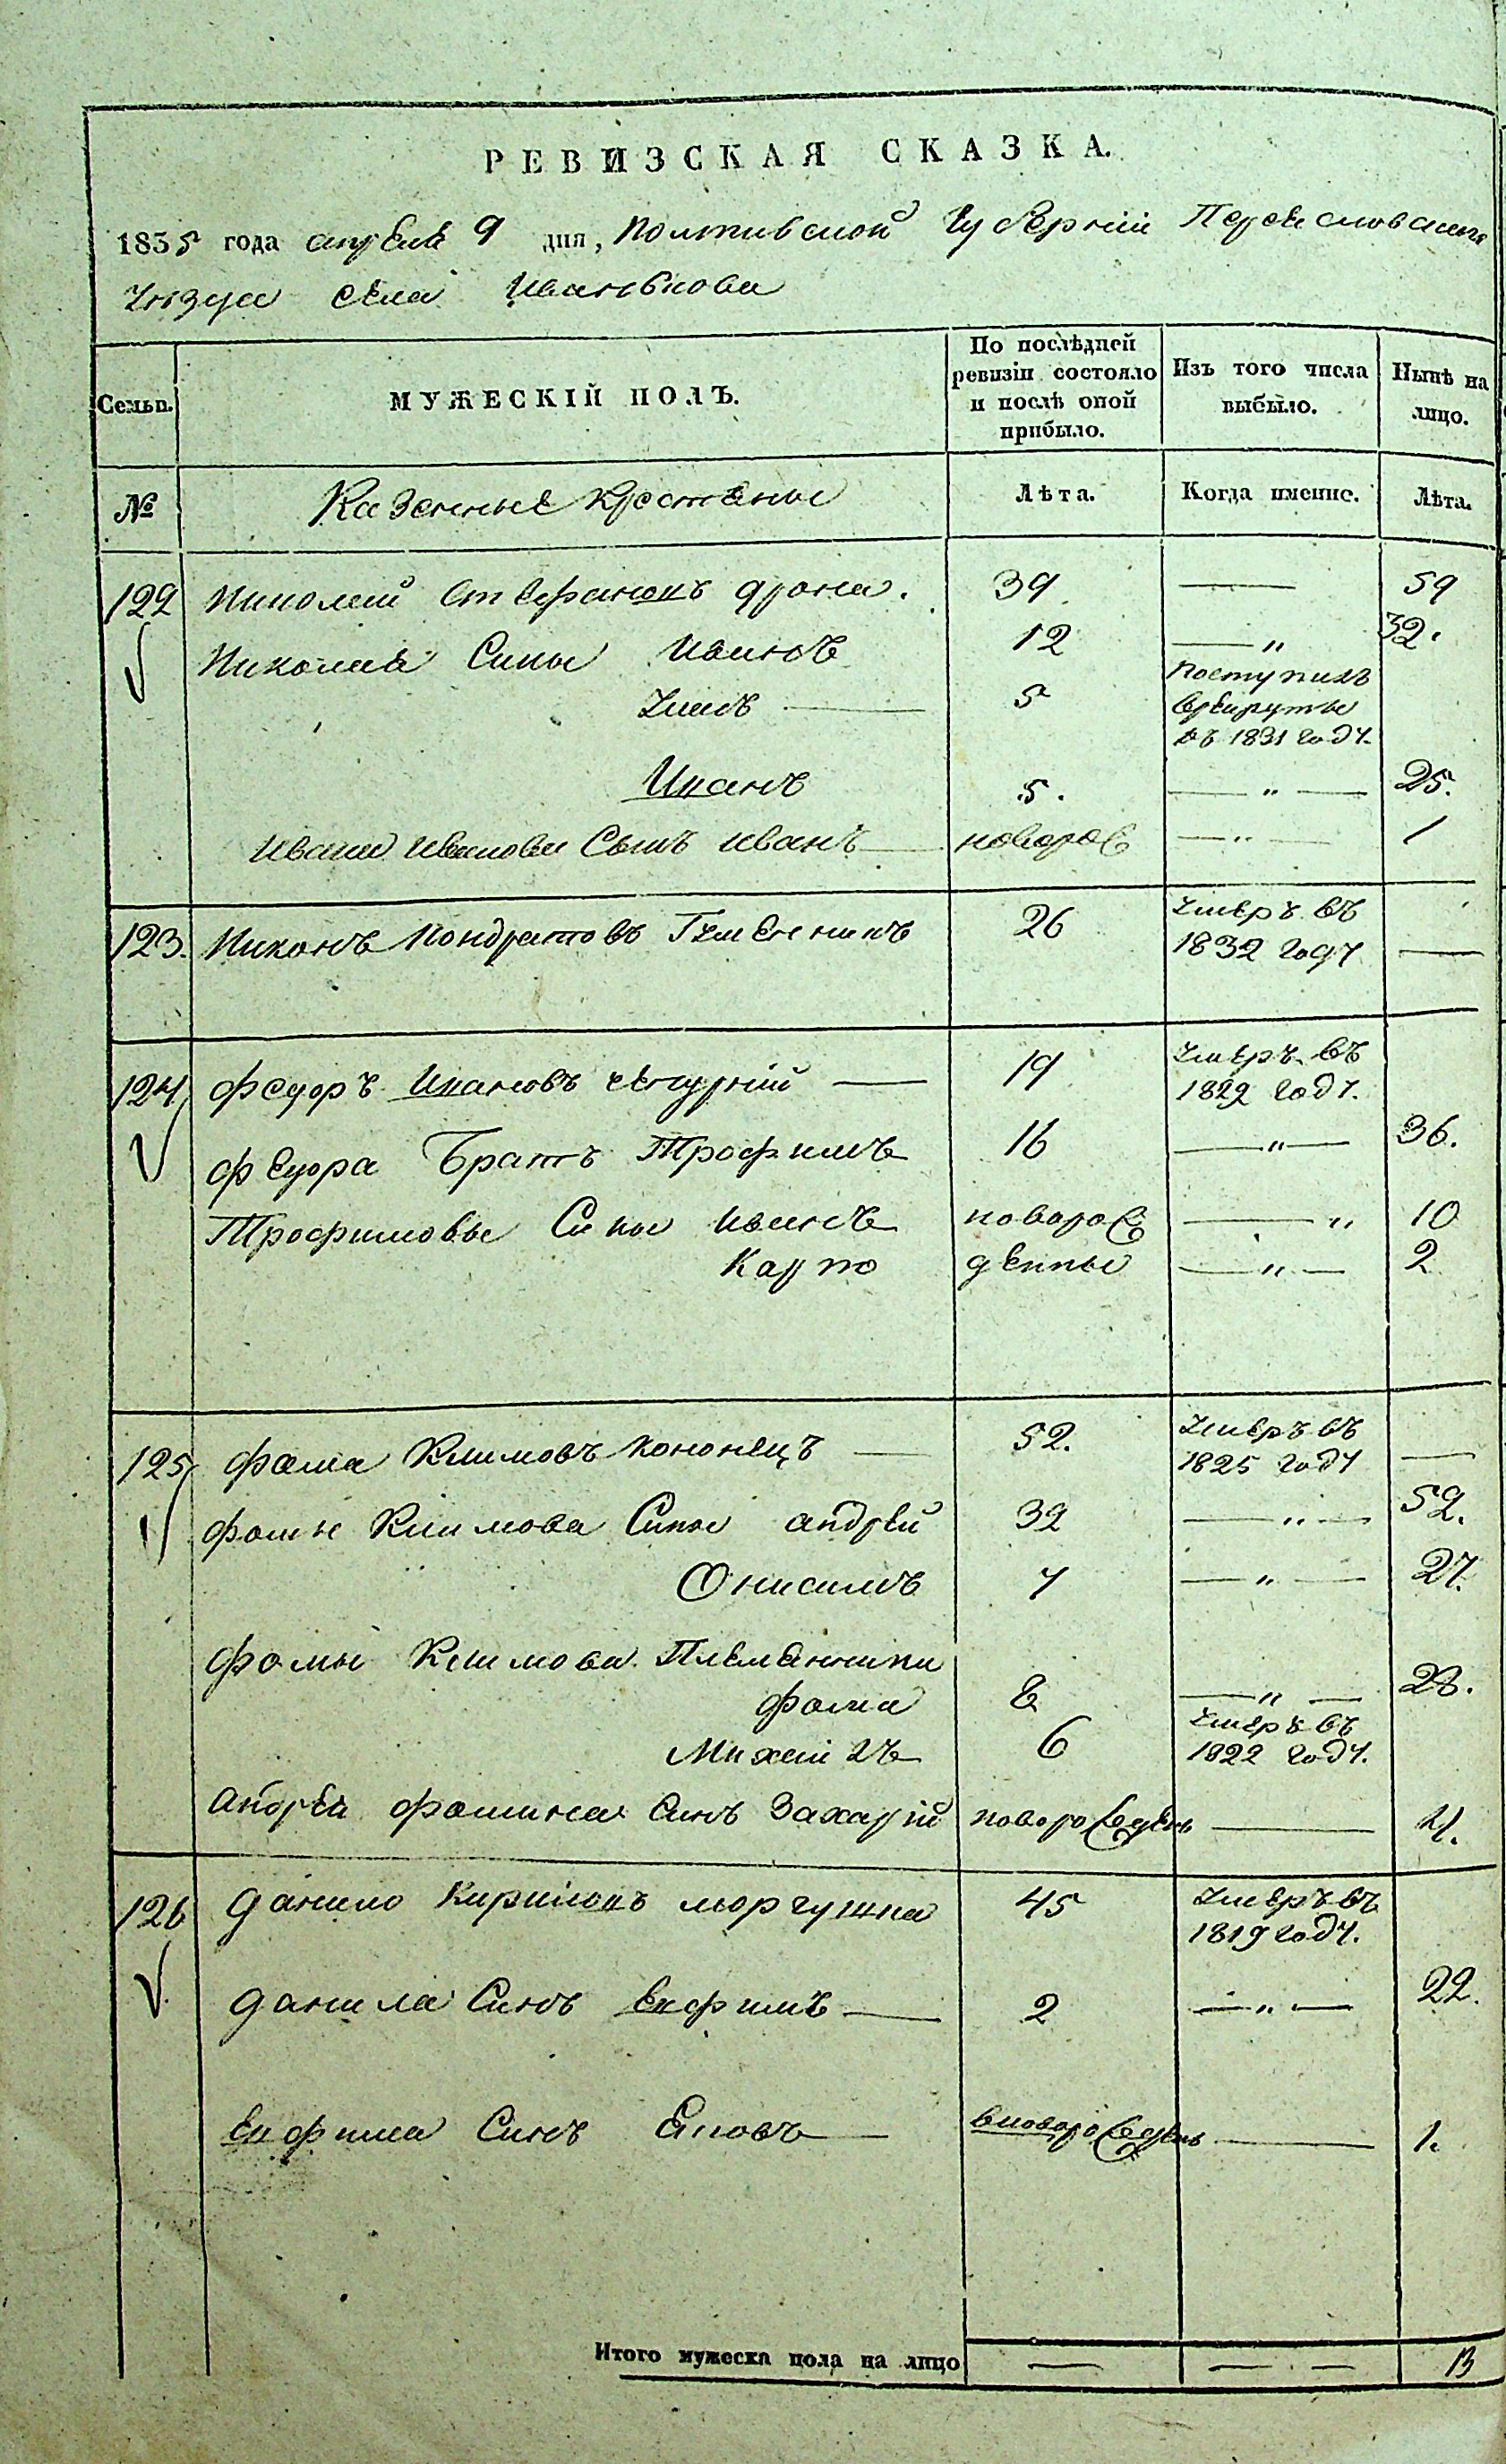 РЕВИЗСКАЯ СКАЗКА.
1835 года апреля 9 дня, Полтавской Губернии Переяславскаго
уезда села Иванькова
Семьи.
МУЖЕСКІЙ ПОЛЪ.
По послѣдней ревизіи состояло и послѣ оной прибыло.
Изъ того числа выбыло.
Нынѣ на лицо.
№ Казенные крестьяне Лѣта. Когда именно. Лѣта.
122 Николай Стефановъ 39 — 59
Николая Сины Иванъ 12 — „ 32.
поступилъ
5 в рекруты
въ 1831 году.
Иванъ 5. — „ — 25.
Ивана Иванова Сынъ Иванъ — новорож — „ — 1
123. Никонъ Кондратовъ 26 умеръ въ
1832 году —
124 Федоръ Ивановъ — 19 умеръ въ
1822 году.
Федора Братъ Трофимъ 16 — „ — 36.
Трофимовы Сины Иванъ новорож — „ 10
Карпо денные — „ — 2
125 Фома Климовъ Кононецъ — 52. умеръ въ
1825 году —
Фомы Климова Сины андрей 32 — „ — 52.
Онисимъ 7 — „ — 27.
Фомы Климова Племянники
Фома 8 — „ — 28.
Михаилъ 6 умеръ въ
1822 году.
андрея Фомина Синъ Захарій новорожденъ — 4.
126 Данило Кириловъ 45 умеръ въ
1819 году.
Данила Синъ Евфимъ — 2 — „ — 22.
Евфима Синъ — вноворожденъ — 1.
Итого мужеска пола на лицо — — — 13